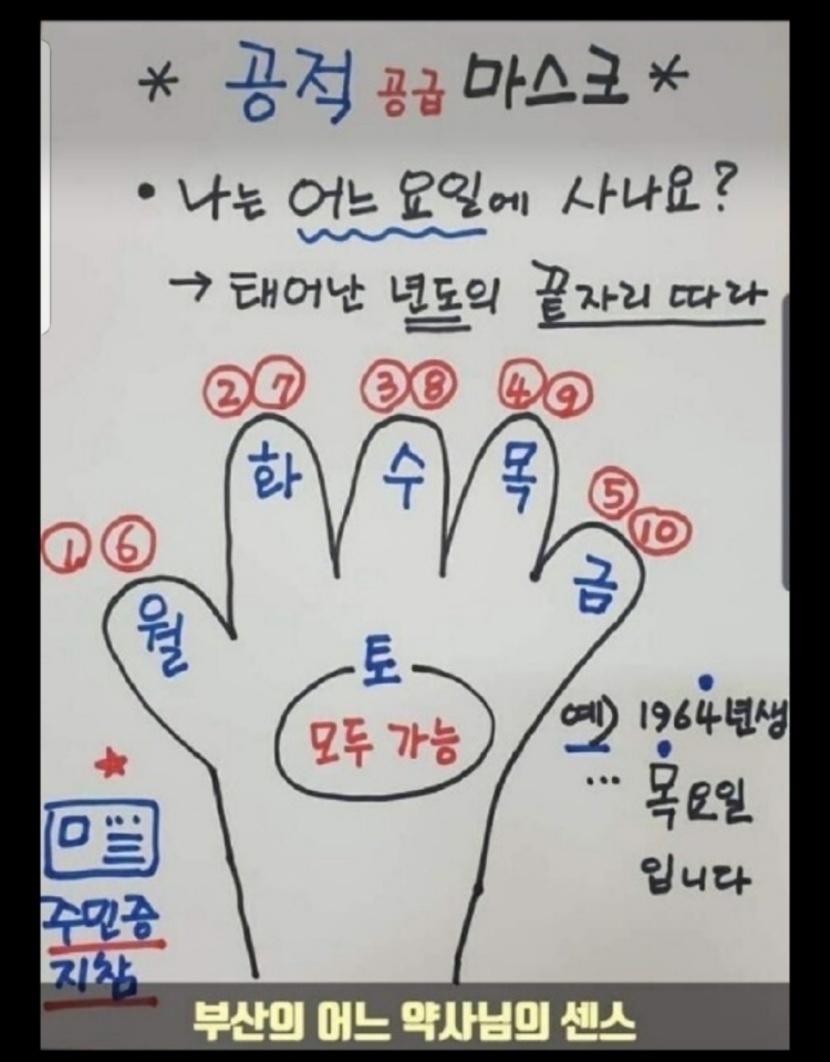 * 공적 공급 마스크 *
• 나는 어느 요일에 사나요?
→ 태어난 년도의 끝자리 따라
② ⑦ ③ ⑧ ④ ⑨
화 수 목
⑤ ⑩
① ⑥
금
월
토
모두 가능
예) 1964년생
... 목요일
입니다
★
주민증
지참
부산의 어느 약사님의 센스